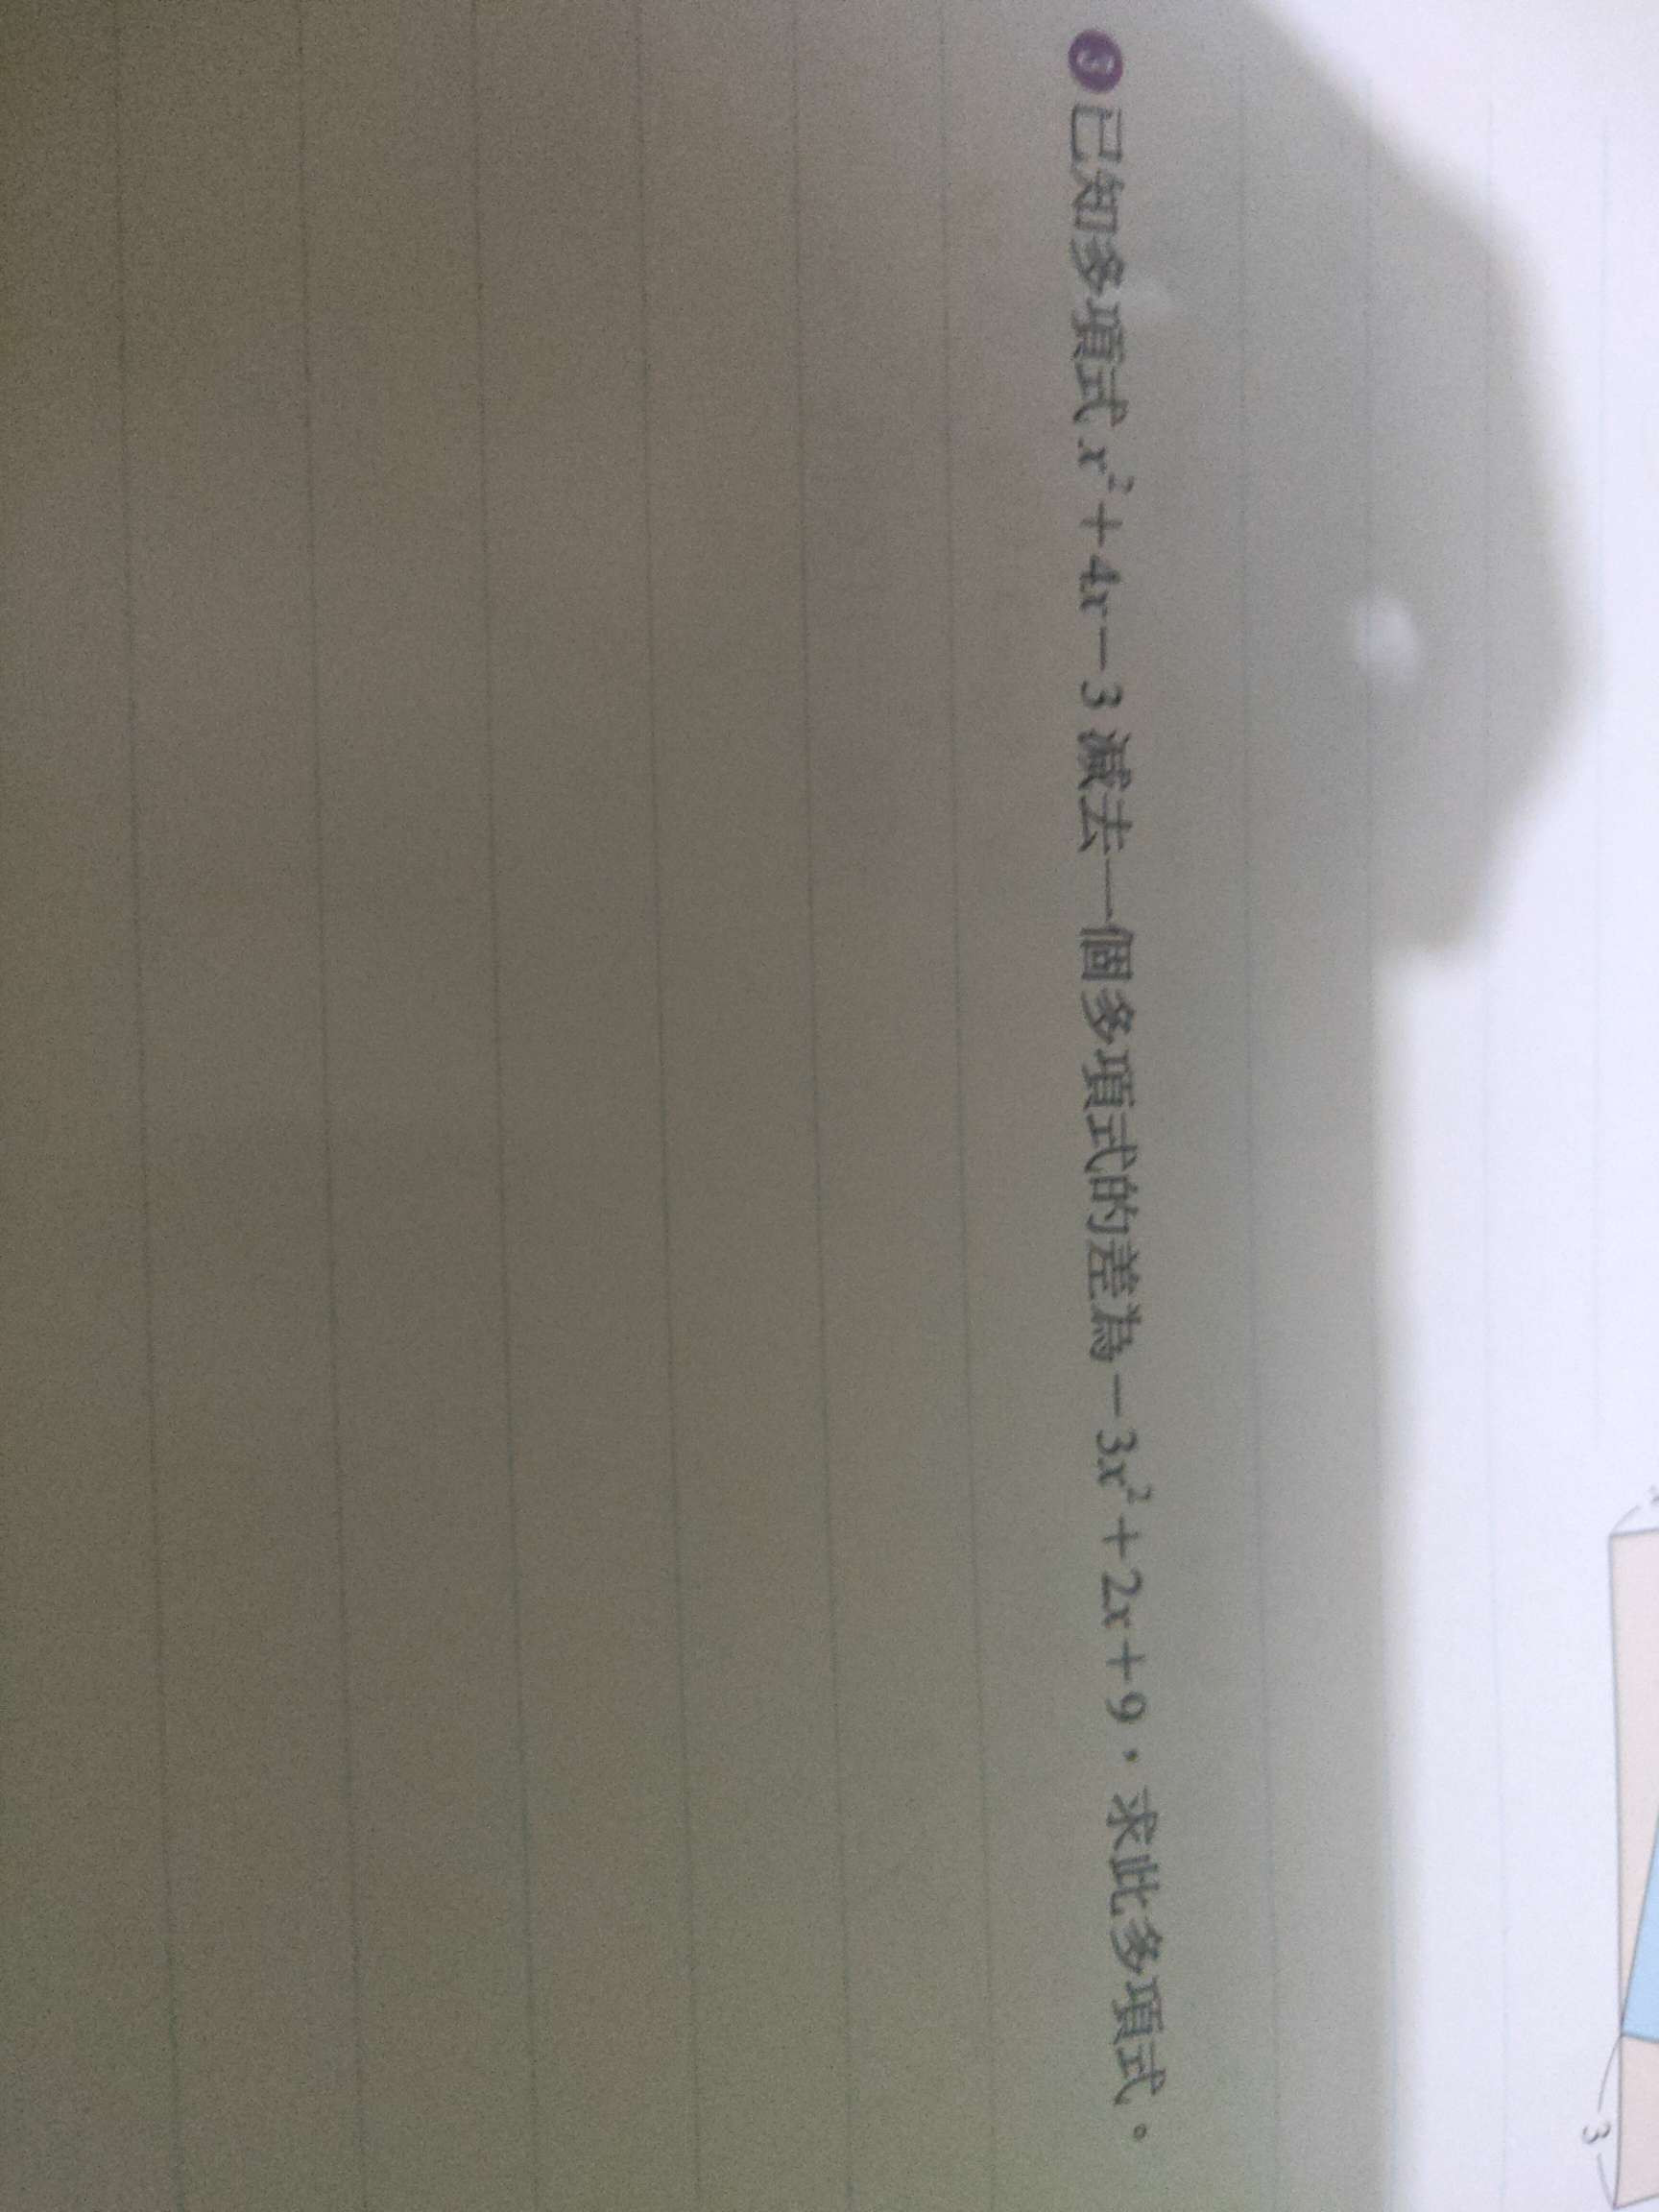 已知多項式 x²+4x-3 減去一個多項式的差為-3x²+2x+9,求此多項式。
3